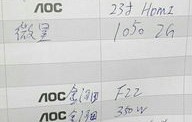 AOC 23寸 HDMI
微星 1050 2G
AOC 金河田 F22
AOC 金河田 350W